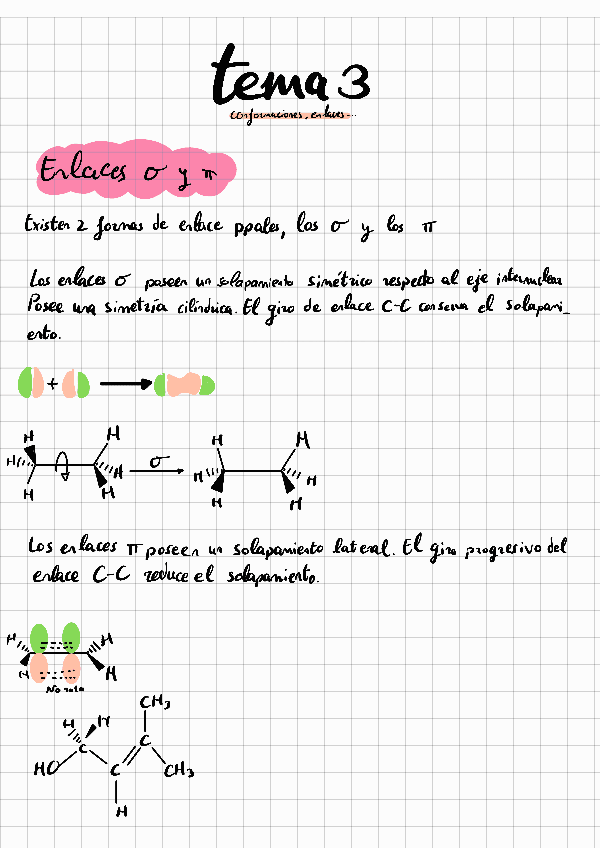 tema 3
conformaciones, enlaces...
Enlaces σ y π
Existen 2 formas de enlace ppales, los σ y los π
Los enlaces σ poseen un solapamiento simétrico respecto al eje internuclear
Posee una simetría cilíndrica. El giro de enlace C-C conserva el solapami_
ento.
+
H H H H
H H σ H H
H H H H
Los enlaces π poseen un solapamiento lateral. El giro progresivo del
enlace C-C reduce el solapamiento.
H H
H H
No rota
CH3
H H
C C
HO C CH3
H